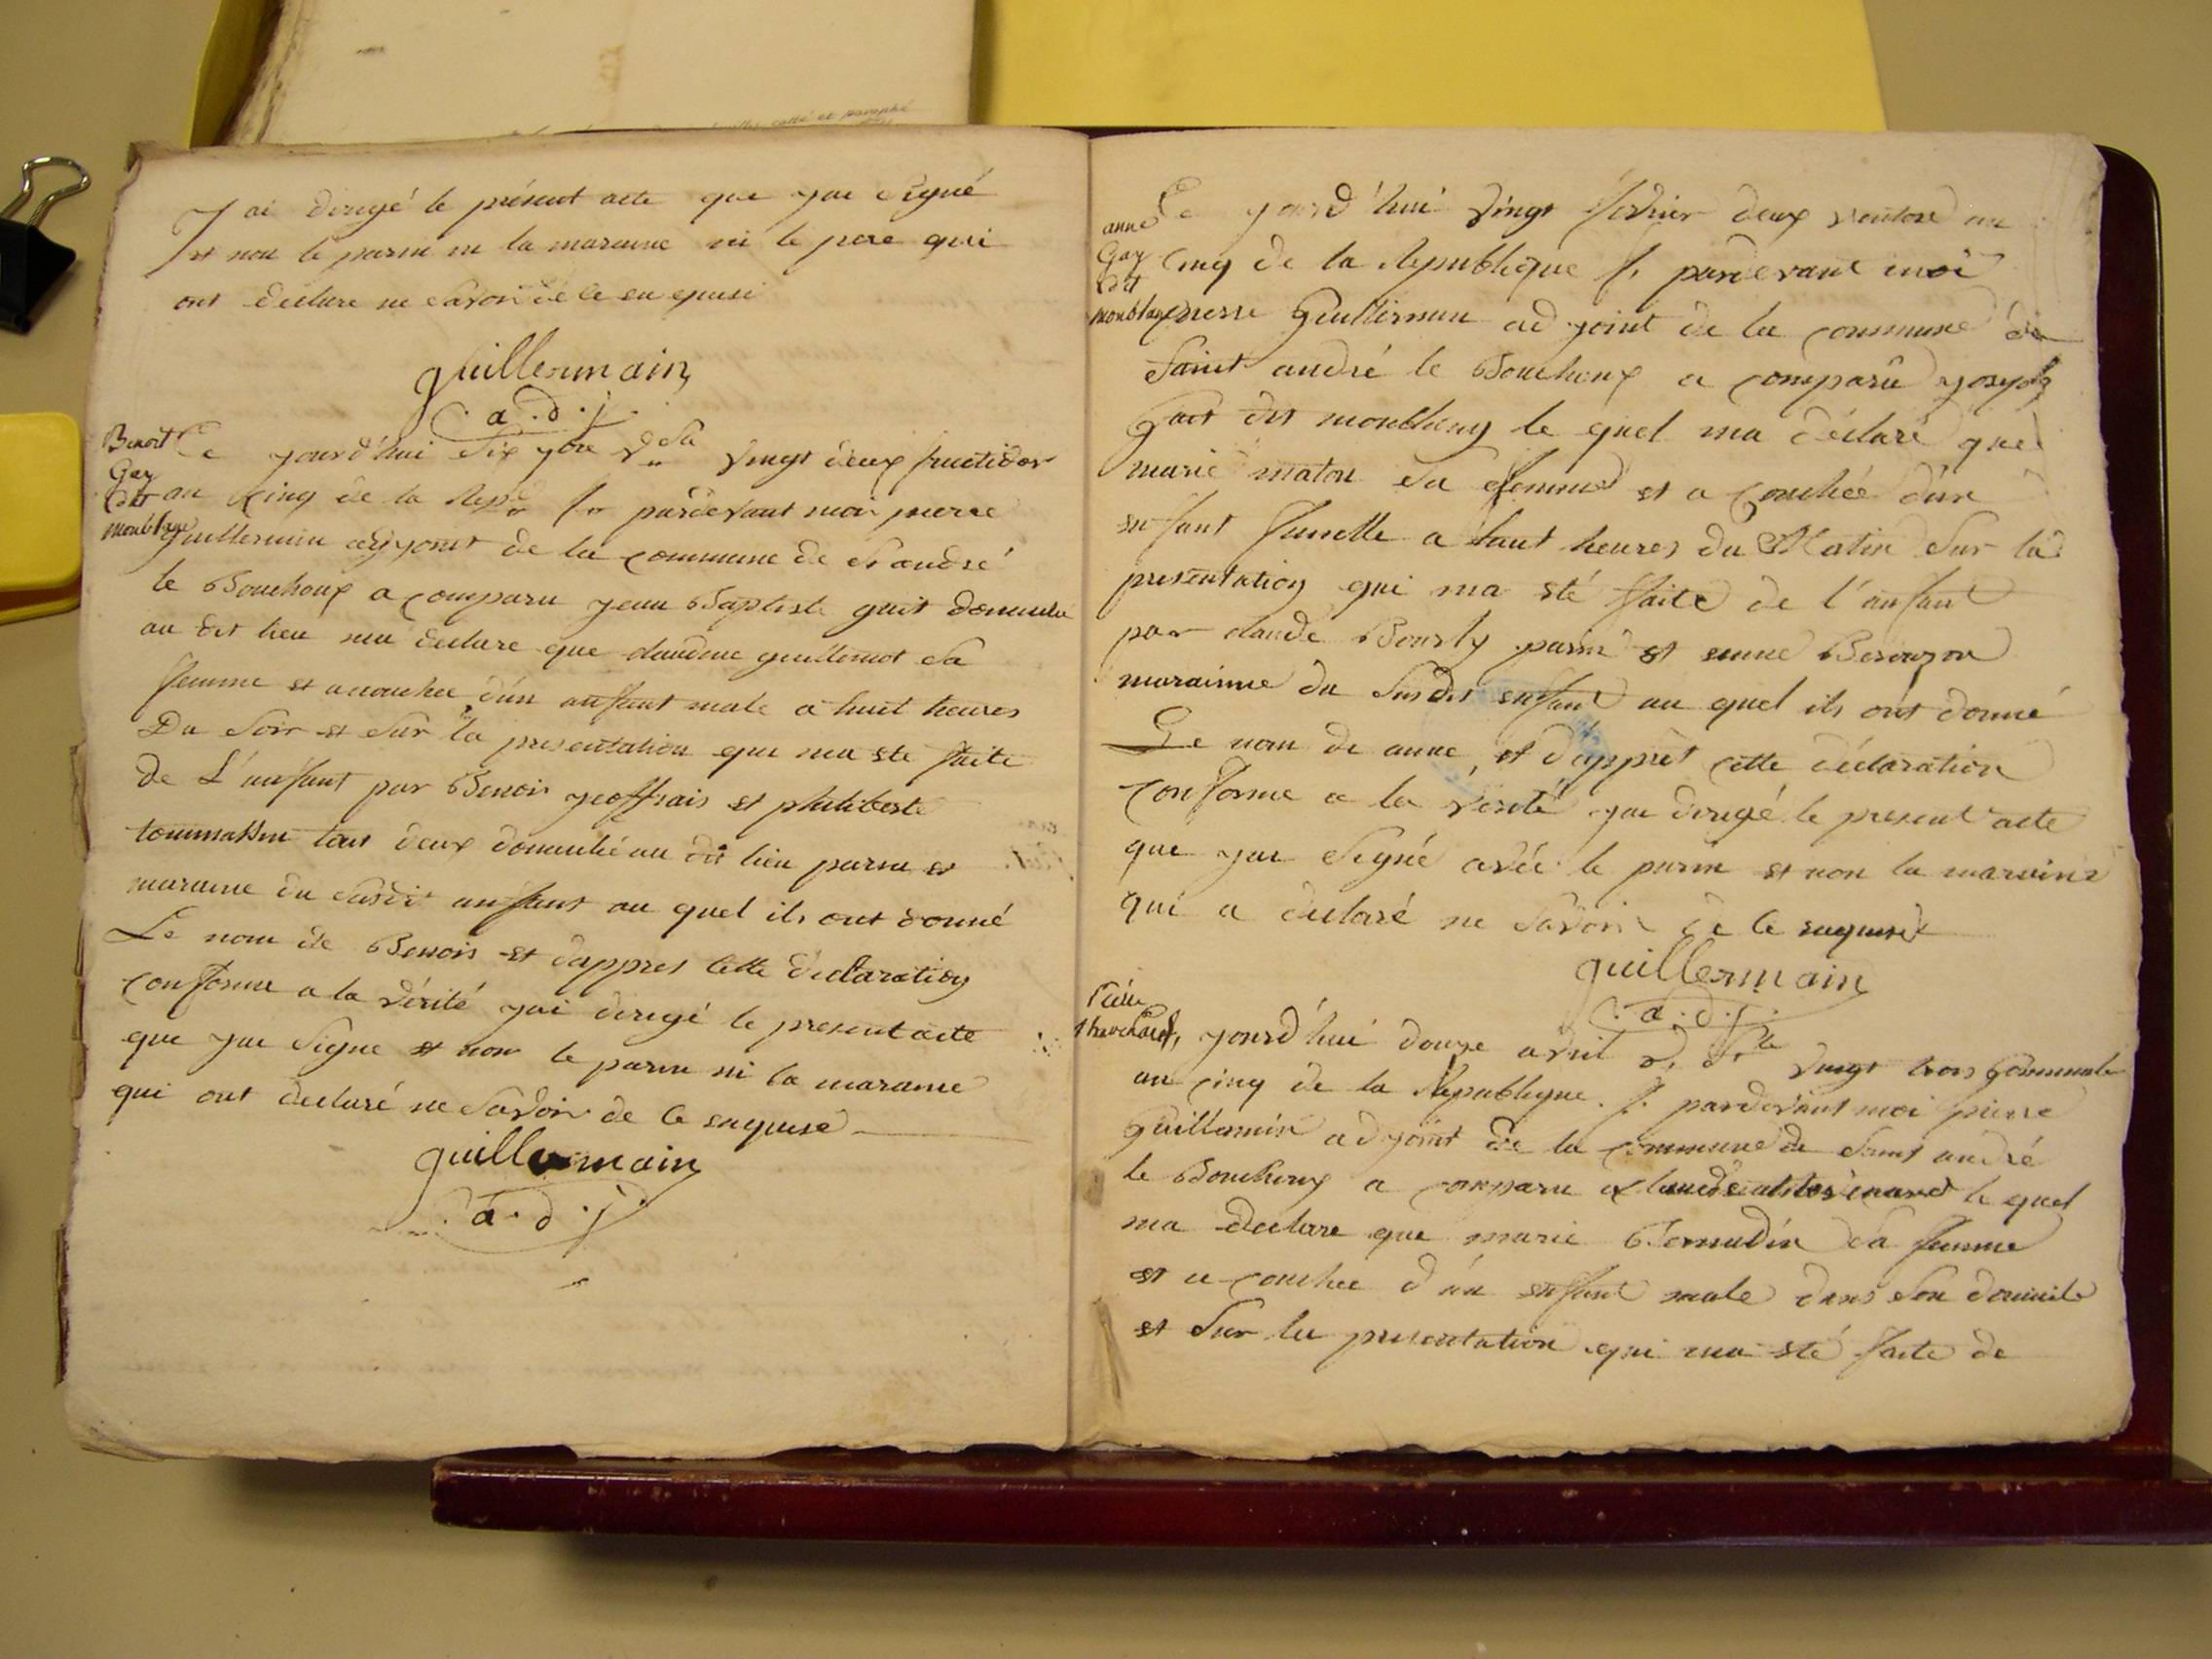 J ai dirigé le présent acte que jai Signé
et non le parin ni la maraine ni le pere qui
ont declare ne Savoir de ce enquis
guillermain
a. d. j.
Benoit
Gay
dit
monblang
Ce yourd'hui Six 7bre v. Sti vingt deux fructidor
an cinq de la Rep. fr pardevant moi pierre
Guillermin adjoint de la commune de St andré
le Bouchoux a comparu jean Baptiste gait domicilie
au dit lieu ma declare que claudine guillemot Sa
femme et acouchee d'un anfant male a huit heures
Du Soir et Sur la presentation que ma ete faite
de L'anfant par Benoit geoffrais et philiberte
tous deux domicilié au dit lieu parin et
maraine du Susdit anfant au quel ils ont donné
Le nom de Benois et dappres cette declaration
conforme a la vérité jai dirigé le present acte
que jai Signe et non le parin ni la maraine
qui ont declaré ne Savoir de ce enquise
guillermain
a. d. j.
anne
Gay
dit
monblang
Ce yourd'hui vingt fevrier deux ventose an
Cinq de la Republique f. pardevant moi
pierre Guillermin adjoint de la commune de
Saint andré le Bouchoux a comparu joseph
Gait dit monblang le quel ma déclaré que
marie maton Sa femme et a couchée d'un
enfant fumelle a huit heures du Matin Sur la
presentation qui ma eté faite de l'anfant
par claude Bourly parin et anne Besonzon
marainne du Susdit enfant au quel ils ont donné
Le nom de anne, et d'apprêt cette déclaration
conforme a la verité jai dirigé le present acte
que jai Signé avec le parin et non la maraine
qui a declaré ne Savoir de ce enquise
guillermain
a. d. j.
yourd'hui douze avril v. Ste vingt trois germinale
an cinq de la Republique. f. pardevant moi pierre
Guillermin adjoint de la commune de Saint andré
le Bouchoux a comparu le quel
ma declare que marie Bernudin Sa femme
et a couchee d'un enfant male dans Son domicile
et Sur la presentation qui ma eté faite de